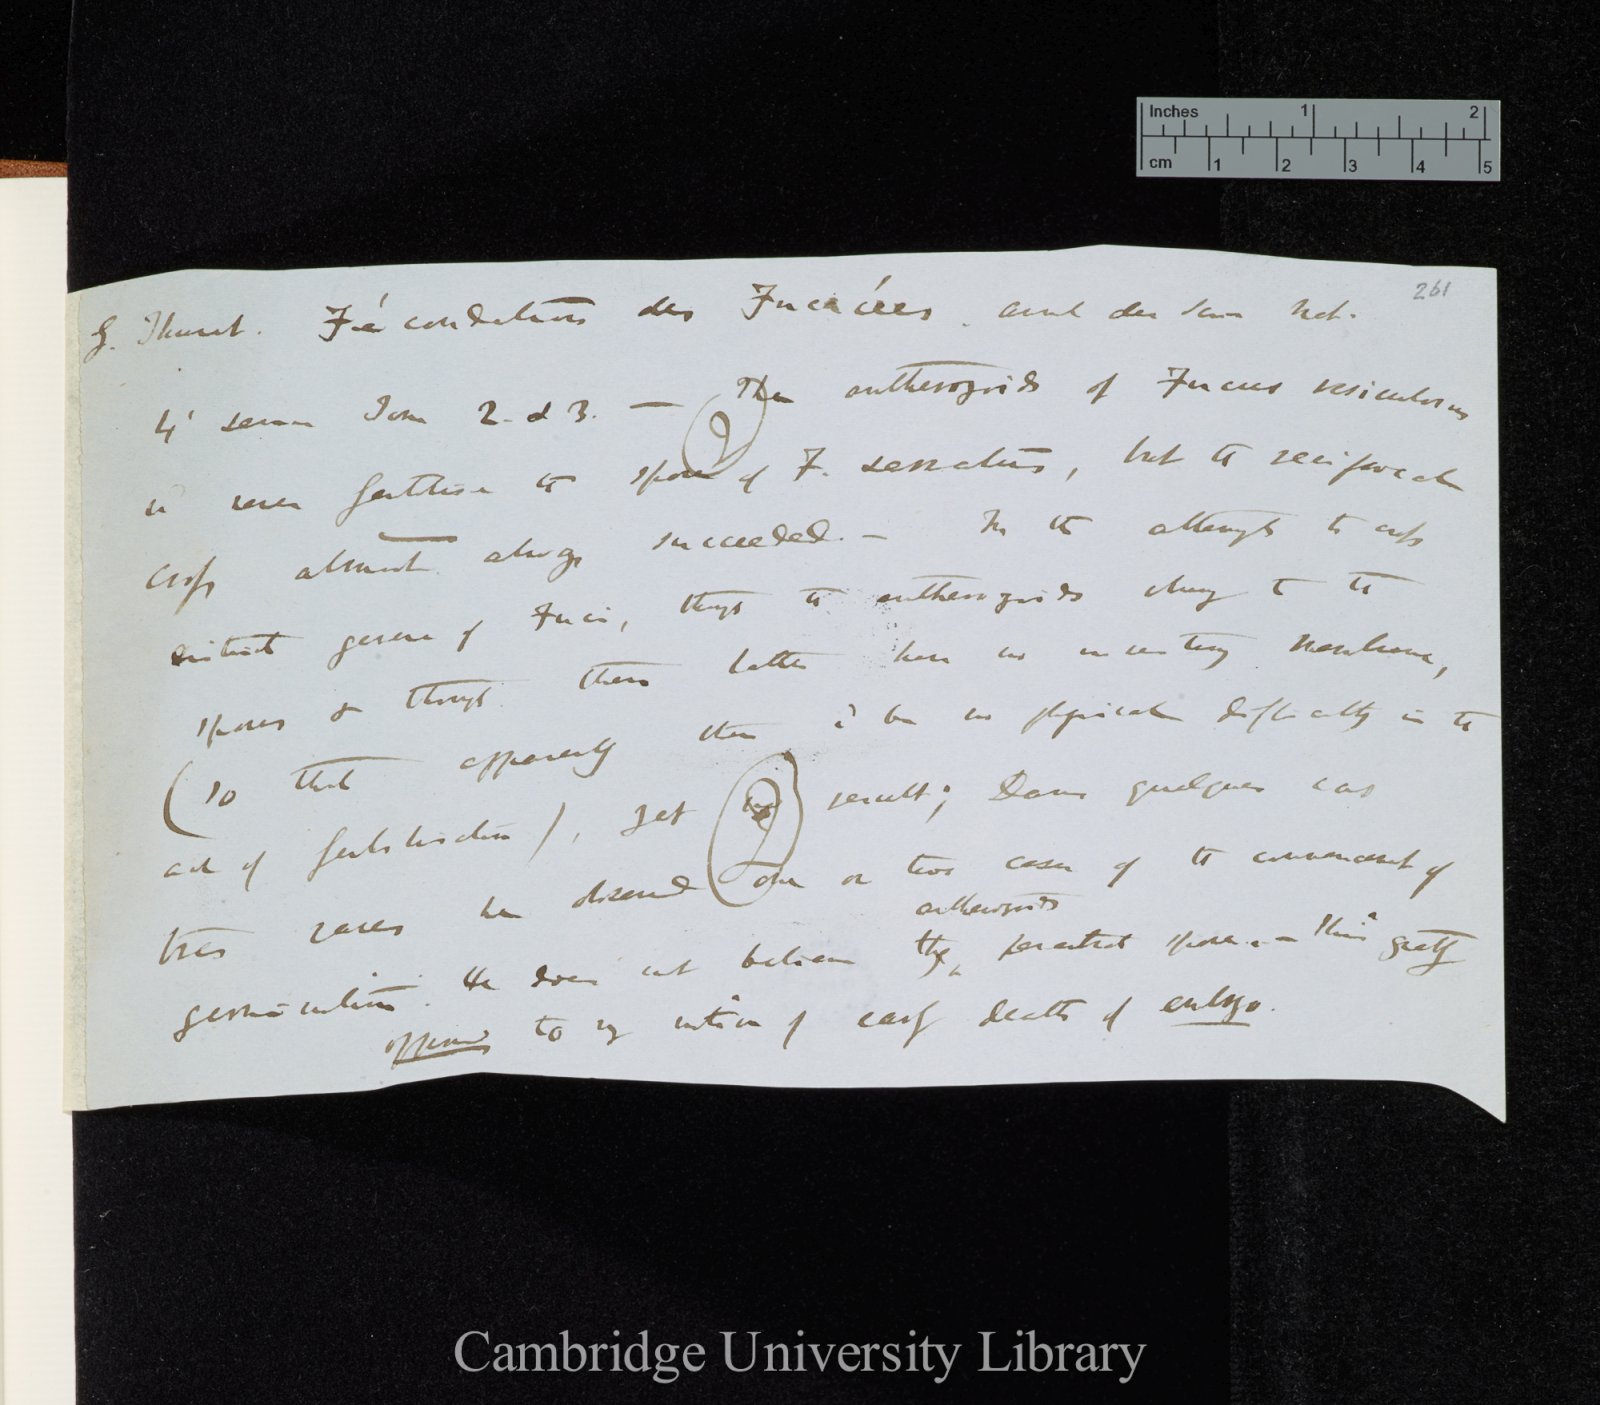 Inches 1 2
cm 1 2 3 4 5
261
G. Thuret. Fécondations des Fucacées. annl des Scien Nat.
4' serie Tom 2. & 3. — The antherozoids of Fucus vesiculosus
never fertilise the spores of F. serratus, but the reciprocal
cross almost always succeeded. — In the attempts to cross
distinct genera of Fuci, though the antherozoids clung to the
spores & though these latter have no investing membrane,
(so that apparently there can be no physical difficulty in the
act of fertilisation), yet no result; Dans quelques cas
très rares he observed one or two cases of the commencement of
germination. He does not believe the antherozoids penetrate spores. — This greatly
opposed to my notion of early death of embryo.
Cambridge University Library